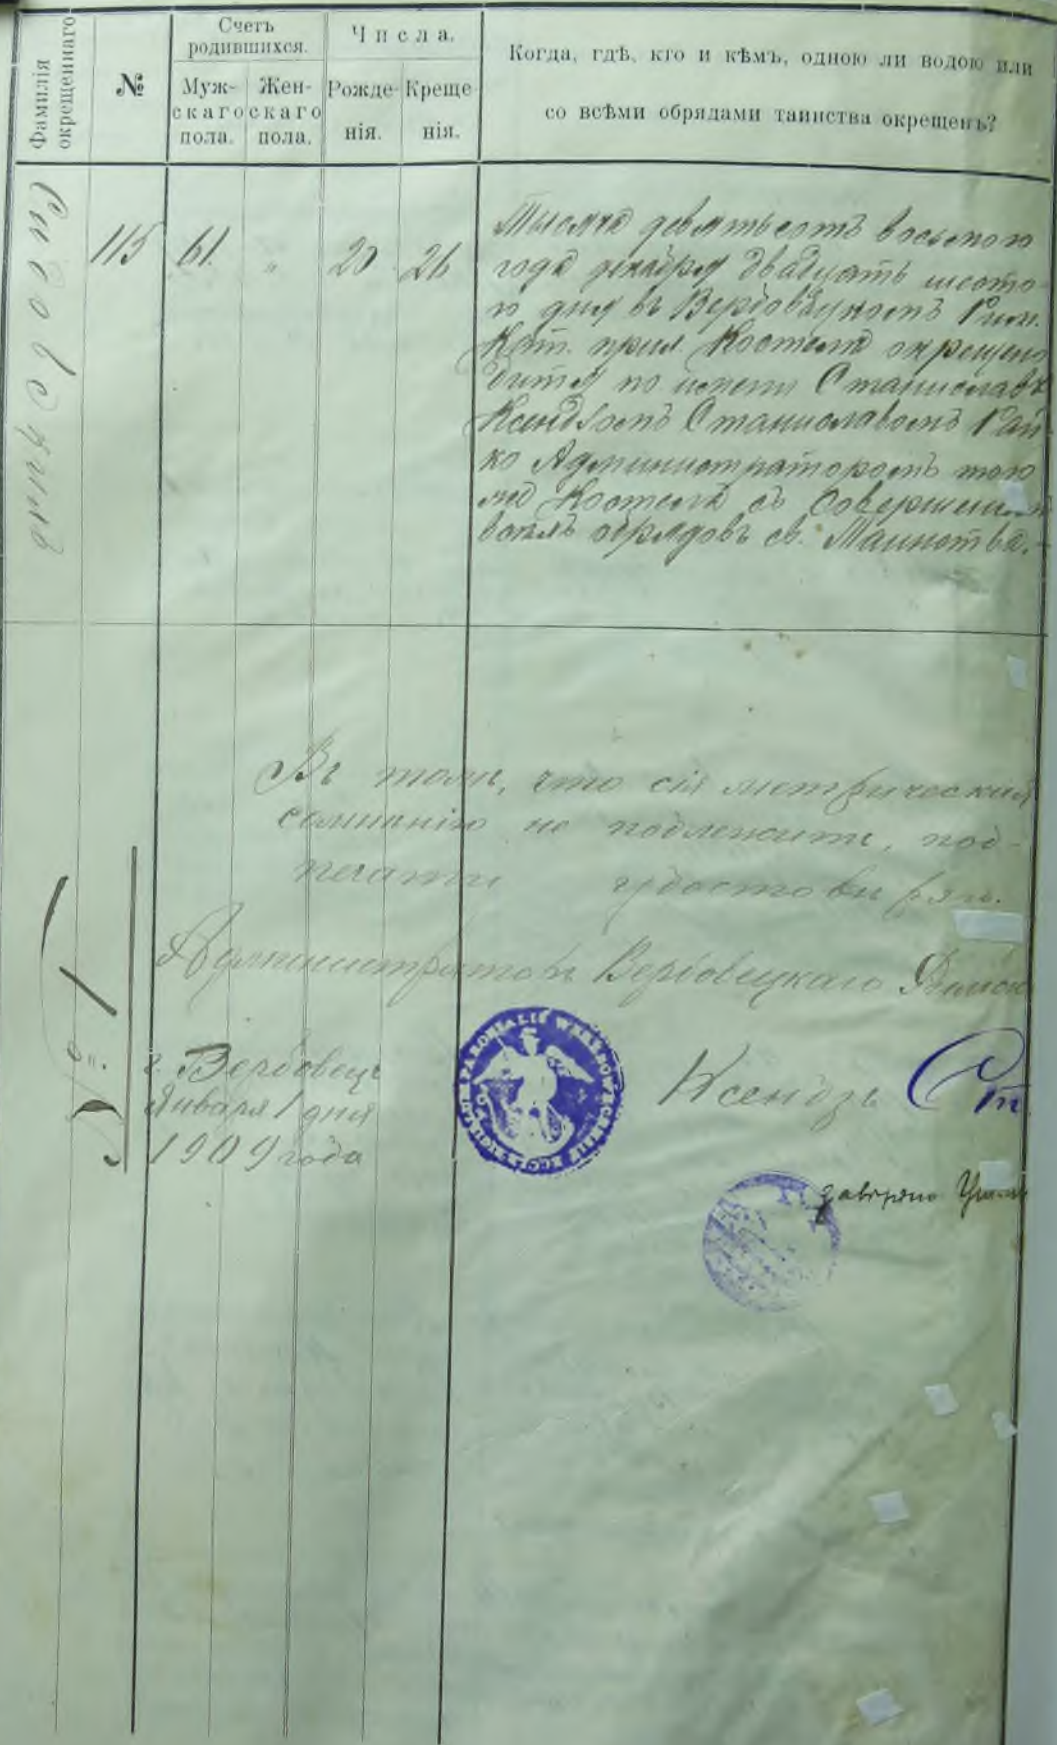 Фамилія
окрещеннаго
№
Счетъ
родившихся.
Муж-
скаго
пола.
Жен-
скаго
пола.
Числа.
Рожде-
нія.
Креще
нія.
Когда, гдѣ, кто и кѣмъ, одною ли водою или
со всѣми обрядами таинства окрещенъ?
115
61.
"
20
26
Тысяча девятьсотъ восьмого
года декабря двадцать шесто-
го дня въ Вербовецкомъ Рим.
Кат. прих. Костелѣ окрещено
дитя по имени Станиславъ
Ксендзомъ Станиславомъ Рай-
ко Администраторомъ того
же Костела съ совершеніемъ
всѣхъ обрядовъ св. Таинства.-
Въ томъ, что сія метрическая
сомнѣнію не подлежитъ, под-
печати удостовѣряю.
Администраторъ Вербовецкаго
№ 1
г. Вербовецъ
Января 1 дня
1909 года
Ксендзъ Ст